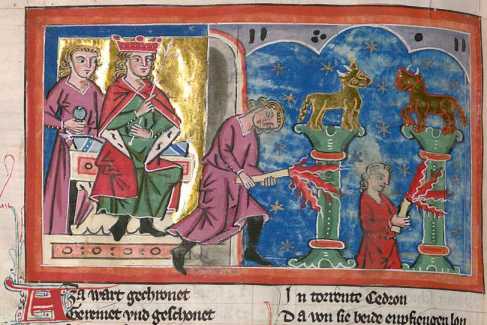 Aza wart gechronet
Gereinet vnd geschonet
In torrente Cedron
Da von sie beide enpfiengen lon